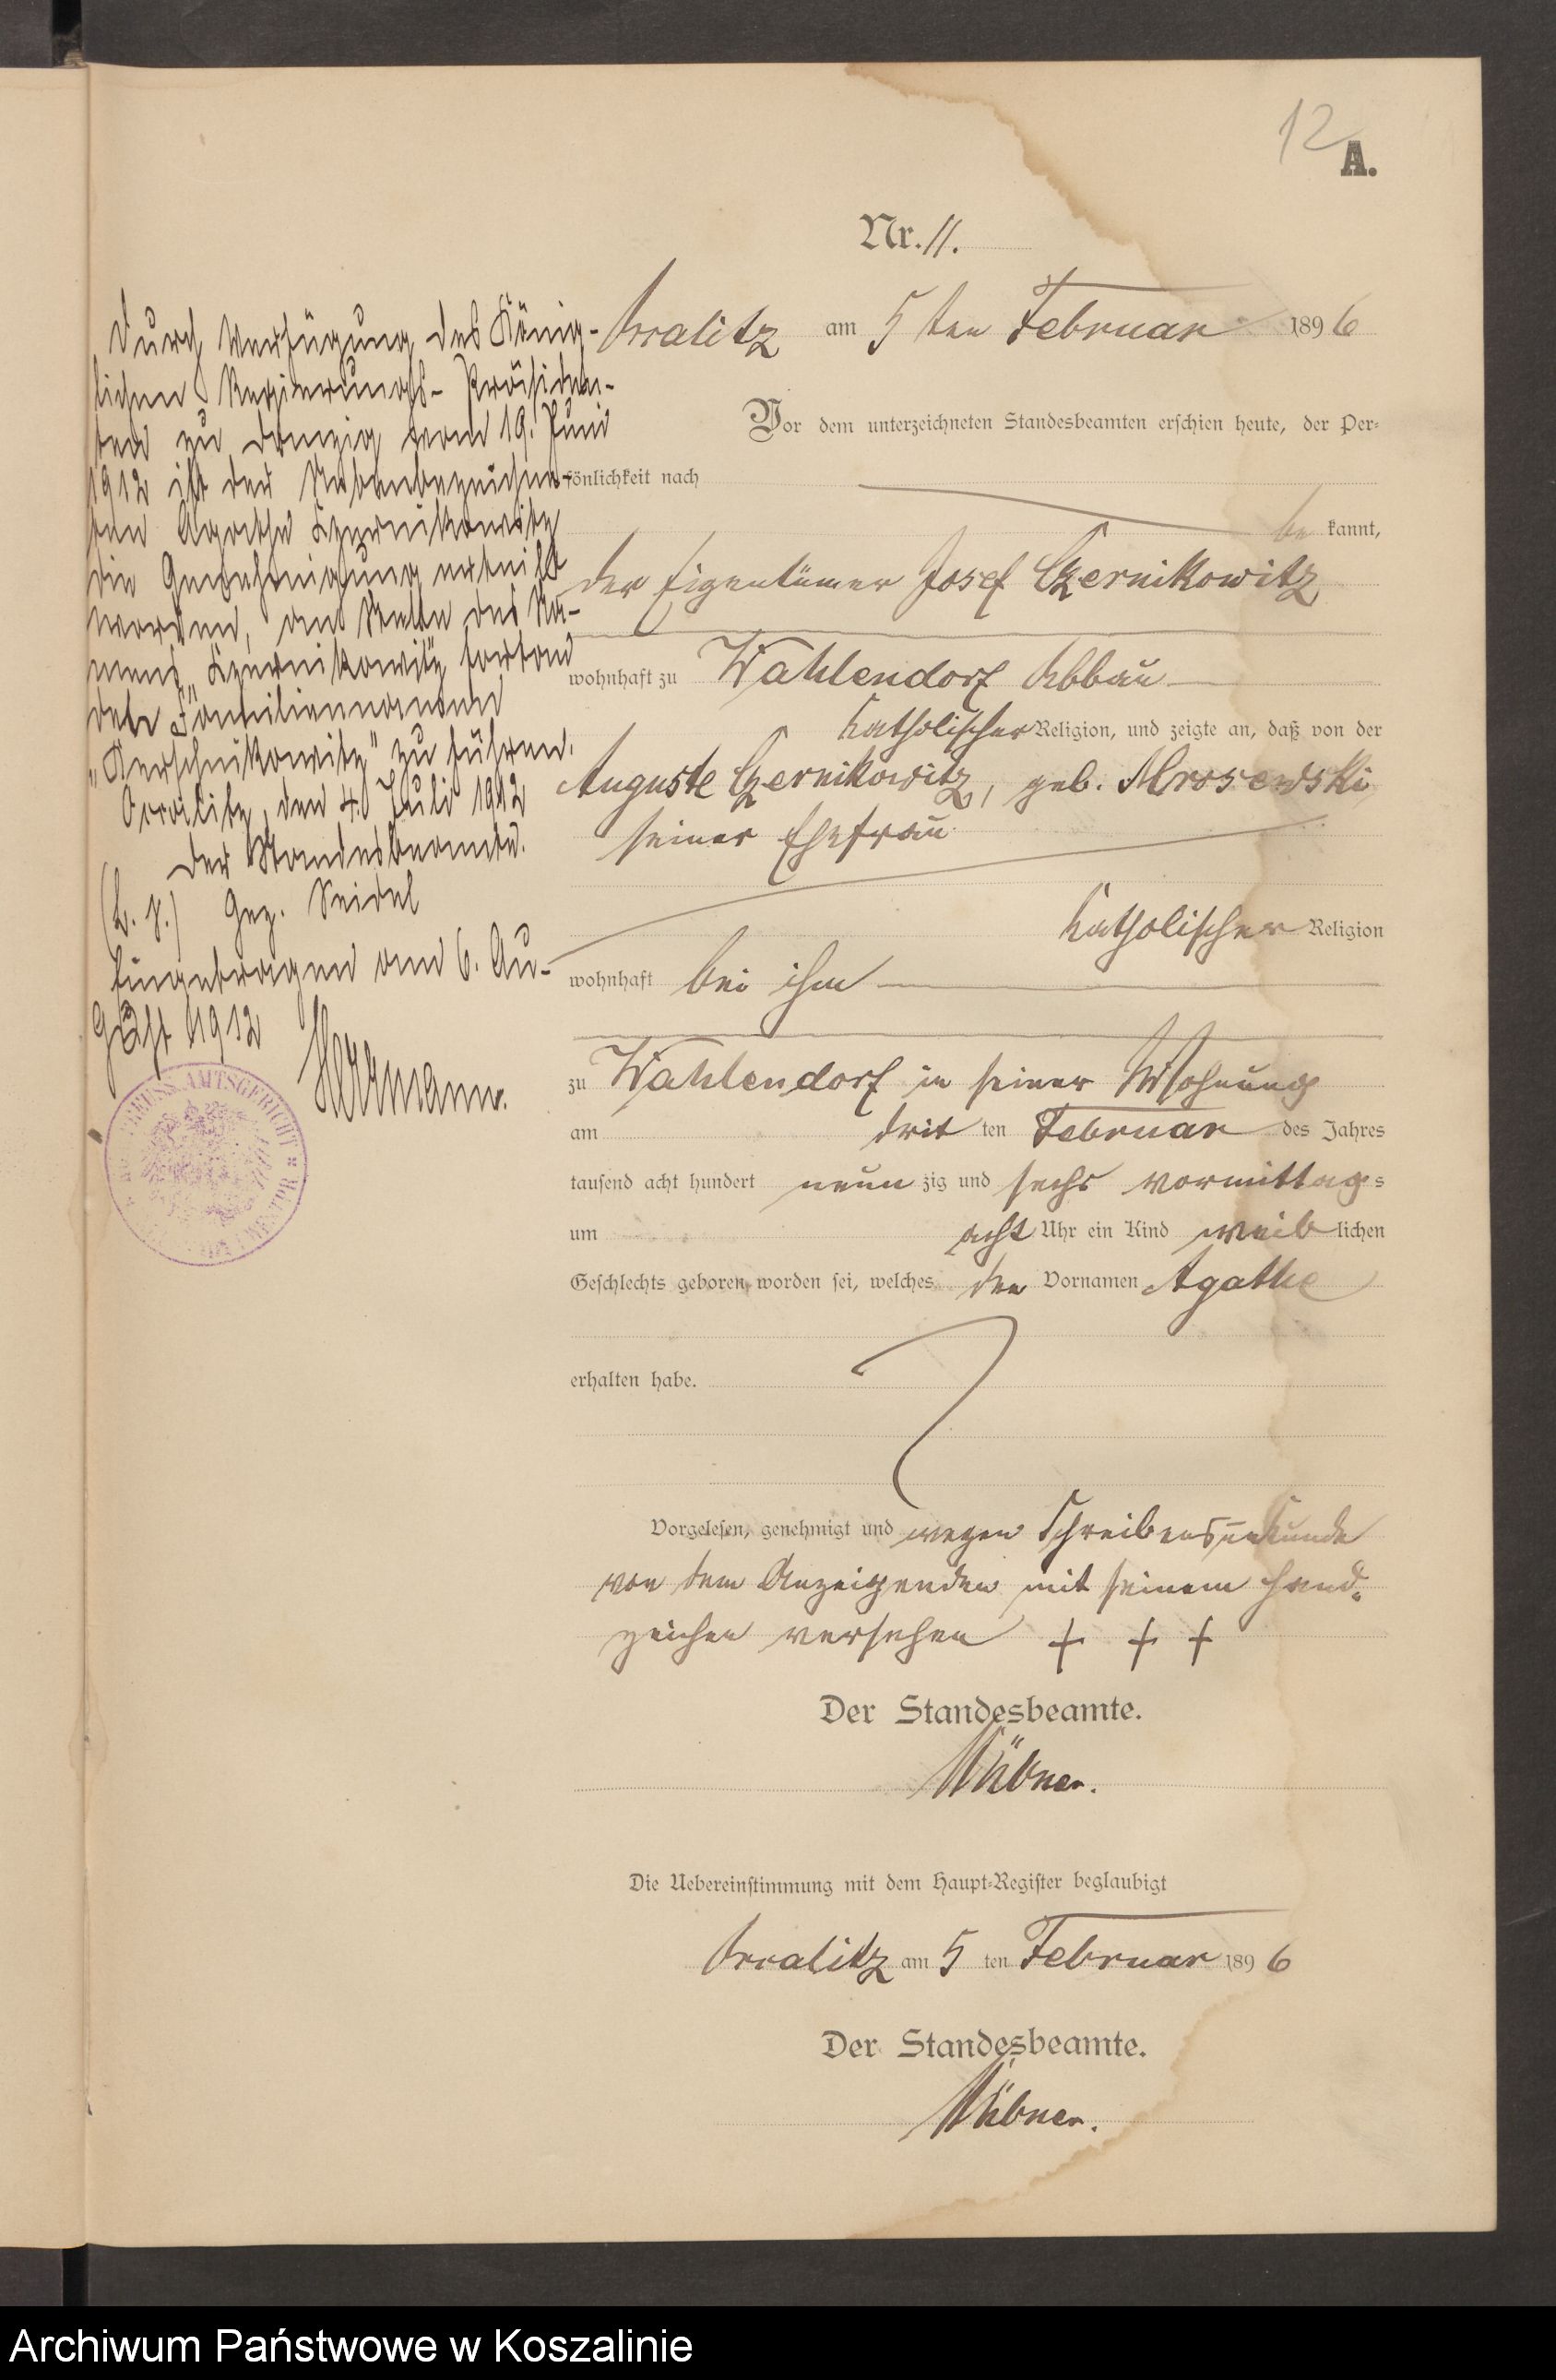 12
A.
Nr. 11.
Orralitz am 5 ten Februar 1896
Vor dem unterzeichneten Standesbeamten erschien heute, der Per-
sönlichkeit nach
be kannt,
der Eigentümer Josef Czernikowitz
wohnhaft zu Wahlendorf Abbau
katholischer Religion, und zeigte an, daß von der
Auguste Czernikowitz, geb. Mrosewski
seiner Ehefrau
katholischer Religion
wohnhaft bei ihm
zu Wahlendorf in seiner Wohnung
am drit ten Februar des Jahres
tausend acht hundert neun zig und sechs vormittag s
um acht Uhr ein Kind weib lichen
Geschlechts geboren worden sei, welches den Vornamen Agathe
erhalten habe.
Vorgelesen, genehmigt und wegen Schreibensunkunde
von dem Anzeigenden mit seinem Hand-
zeichen versehen + + +
Der Standesbeamte.
Hübner.
Die Uebereinstimmung mit dem Haupt-Register beglaubigt
Orralitz am 5 ten Februar 1896
Der Standesbeamte.
Hübner.
Durch Verfügung des König-
lichen Regierungs-Präsiden-
ten zu Danzig vom 19. Juni
1912 ist der Nebenbezeichne-
ten Agathe Czernikowitz
die Genehmigung erteilt
worden, an Stelle des Na-
mens "Czernikowitz" fortan
den Familiennamen
"Kerschnikowitz" zu führen.
Orralitz, den 4. Juli 1912
Der Standesbeamte.
(L. S.) Gez. Seidel
Eingetragen am 6. Au-
gust 1912
Herrmann.
PREUSS. AMTSGERICHT
Archiwum Państwowe w Koszalinie